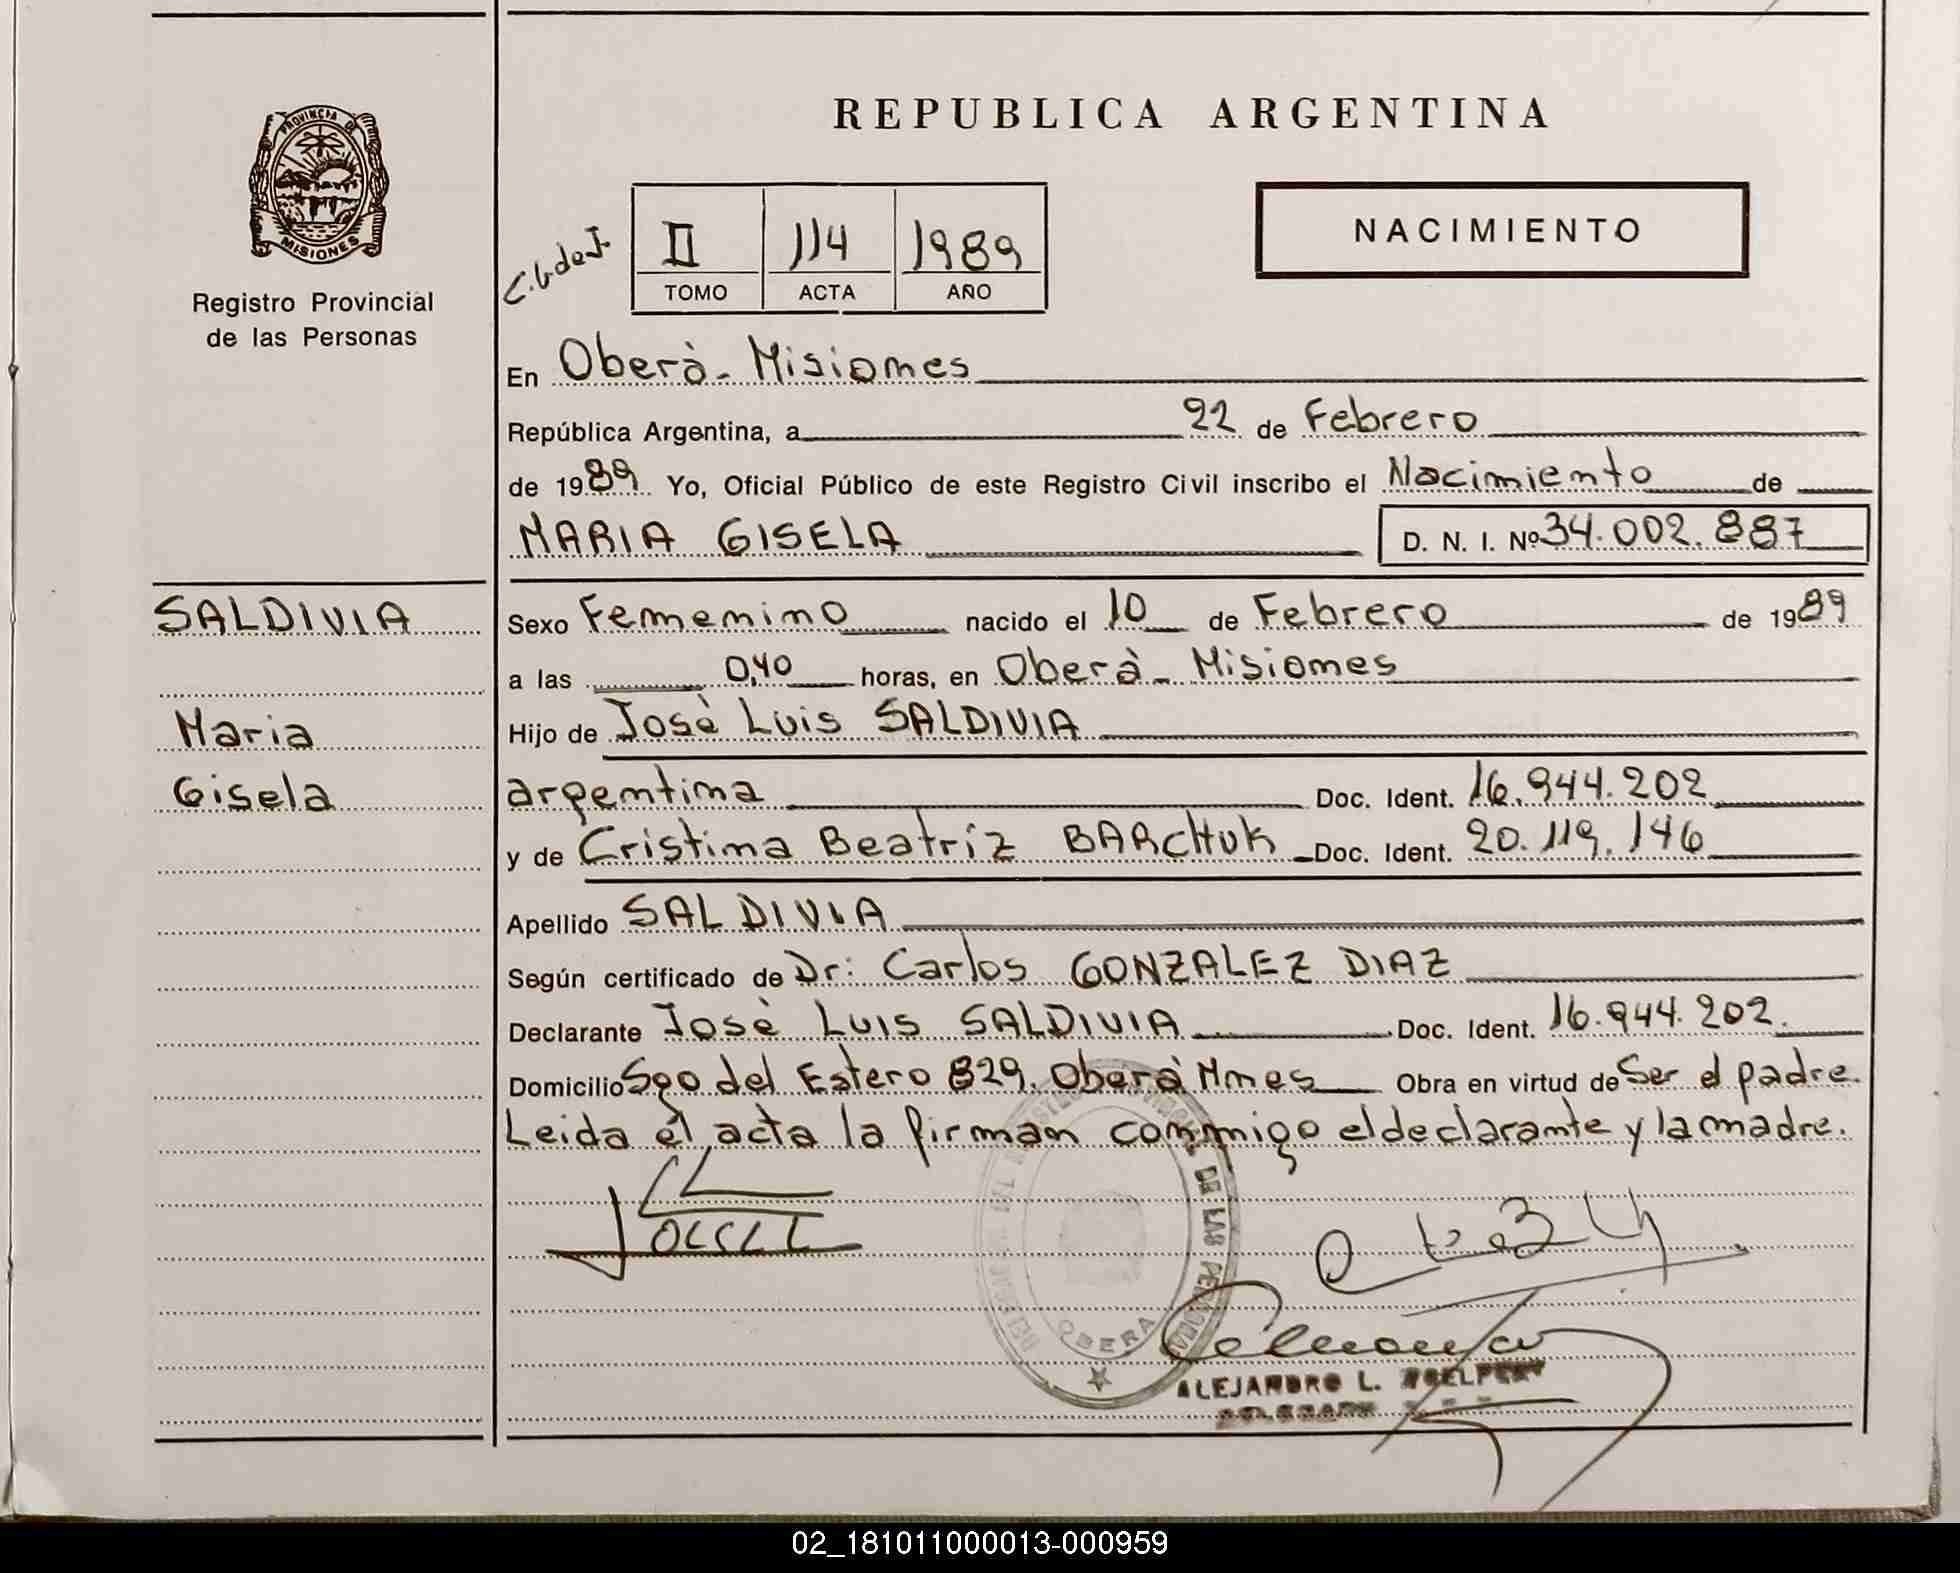 REPUBLICA ARGENTINA
PROVINCIA DE
MISIONES
Registro Provincial
de las Personas
NACIMIENTO
II 114 1989
TOMO ACTA AÑO
En Oberà - Misiones
República Argentina, a 22 de Febrero
de 1989 Yo, Oficial Público de este Registro Civil inscribo el Nacimiento de
MARIA GISELA D. N. I. Nº 34.002.887
SALDIVIA
Maria
Gisela
Sexo Femenino nacido el 10 de Febrero de 1989
a las 0,40 horas, en Oberà - Misiones
Hijo de Josè Luis SALDIVIA
argentina Doc. Ident. 16.944.202
y de Cristina Beatriz BARCHUK Doc. Ident. 20.119.146
Apellido SALDIVIA
Según certificado de Dr: Carlos GONZALEZ DIAZ
Declarante Josè Luis SALDIVIA Doc. Ident. 16.944.202.
Domicilio Sgo del Estero 829. Oberà Mnes Obra en virtud de Ser el padre.
Leida el acta la firman conmigo el declarante y la madre.
DE LAS
OBERA
ALEJANDRO L.
02_181011000013-000959